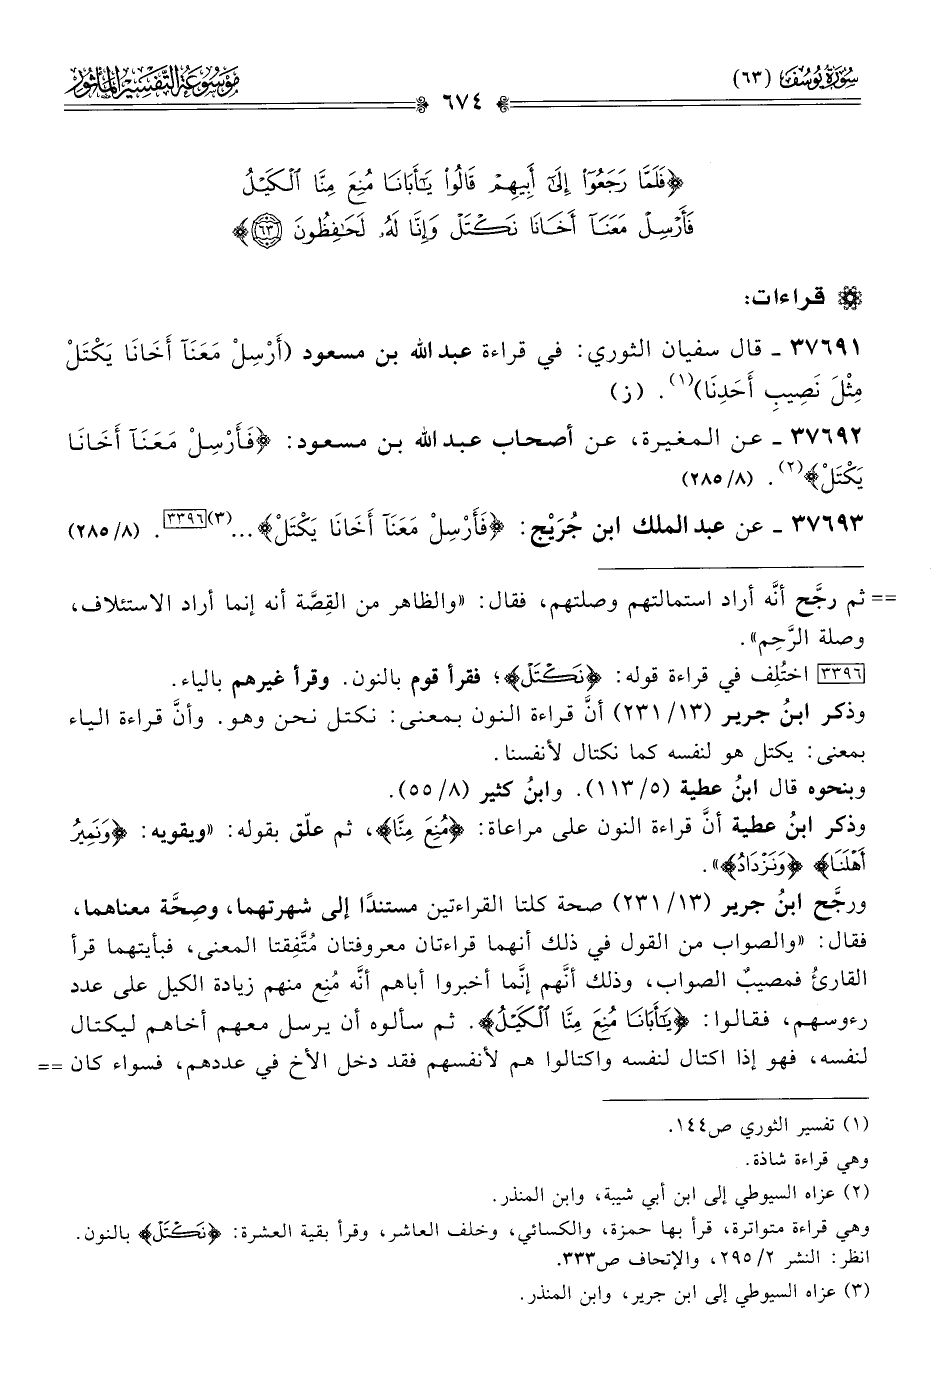 سورة يوسف (٦٣)
٦٧٤
موسوعة التفسير المأثور
﴿فَلَمَّا رَجَعُوٓا۟ إِلَىٰٓ أَبِيهِمْ قَالُوا۟ يَـٰٓأَبَانَا مُنِعَ مِنَّا ٱلْكَيْلُ
فَأَرْسِلْ مَعَنَآ أَخَانَا نَكْتَلْ وَإِنَّا لَهُۥ لَحَـٰفِظُونَ ٦٣﴾
قراءات:
٣٧٦٩١ ـ قال سفيان الثوري: في قراءة عبد الله بن مسعود (أَرْسِلْ مَعَنَآ أَخَانَا يَكْتَلْ
مِثْلَ نَصِيبِ أَحَدِنَا)(١). (ز)
٣٧٦٩٢ ـ عن المغيرة، عن أصحاب عبد الله بن مسعود: ﴿فَأَرْسِلْ مَعَنَآ أَخَانَا
يَكْتَلْ﴾(٢). (٢٨٥/٨)
٣٧٦٩٣ ـ عن عبد الملك ابن جُرَيْج: ﴿فَأَرْسِلْ مَعَنَآ أَخَانَا يَكْتَلْ﴾...(٣)[٣٣٩٦]. (٢٨٥/٨)
== ثم رجَّح أنَّه أراد استمالتهم وصلتهم، فقال: «والظاهر من القِصَّة أنه إنما أراد الاستئلاف،
وصلة الرَّحِم».
[٣٣٩٦] اختُلِف في قراءة قوله: ﴿نَكْتَلْ﴾؛ فقرأ قوم بالنون. وقرأ غيرهم بالياء.
وذكر ابنُ جرير (٢٣١/١٣) أنَّ قراءة النون بمعنى: نكتل نحن وهو. وأنَّ قراءة الياء
بمعنى: يكتل هو لنفسه كما نكتال لأنفسنا.
وبنحوه قال ابنُ عطية (١١٣/٥). وابنُ كثير (٥٥/٨).
وذكر ابنُ عطية أنَّ قراءة النون على مراعاة: ﴿مُنِعَ مِنَّا﴾، ثم علّق بقوله: «ويقويه: ﴿وَنَمِيرُ
أَهْلَنَا﴾ ﴿وَنَزْدَادُ﴾».
ورجَّح ابنُ جرير (٢٣١/١٣) صحة كلتا القراءتين مستندًا إلى شهرتهما، وصِحَّة معناهما،
فقال: «والصواب من القول في ذلك أنهما قراءتان معروفتان مُتَّفِقتا المعنى، فبأيتهما قرأ
القارئُ فمصيبٌ الصواب، وذلك أنَّهم إنَّما أخبروا أباهم أنَّه مُنِع منهم زيادة الكيل على عدد
رءوسهم، فقالوا: ﴿يَـٰٓأَبَانَا مُنِعَ مِنَّا ٱلْكَيْلُ﴾. ثم سألوه أن يرسل معهم أخاهم ليكتال
لنفسه، فهو إذا اكتال لنفسه واكتالوا هم لأنفسهم فقد دخل الأخ في عددهم، فسواء كان ==
(١) تفسير الثوري ص١٤٤.
وهي قراءة شاذة.
(٢) عزاه السيوطي إلى ابن أبي شيبة، وابن المنذر.
وهي قراءة متواترة، قرأ بها حمزة، والكسائي، وخلف العاشر، وقرأ بقية العشرة: ﴿نَكْتَلْ﴾ بالنون.
انظر: النشر ٢٩٥/٢، والإتحاف ص٣٣٣.
(٣) عزاه السيوطي إلى ابن جرير، وابن المنذر.